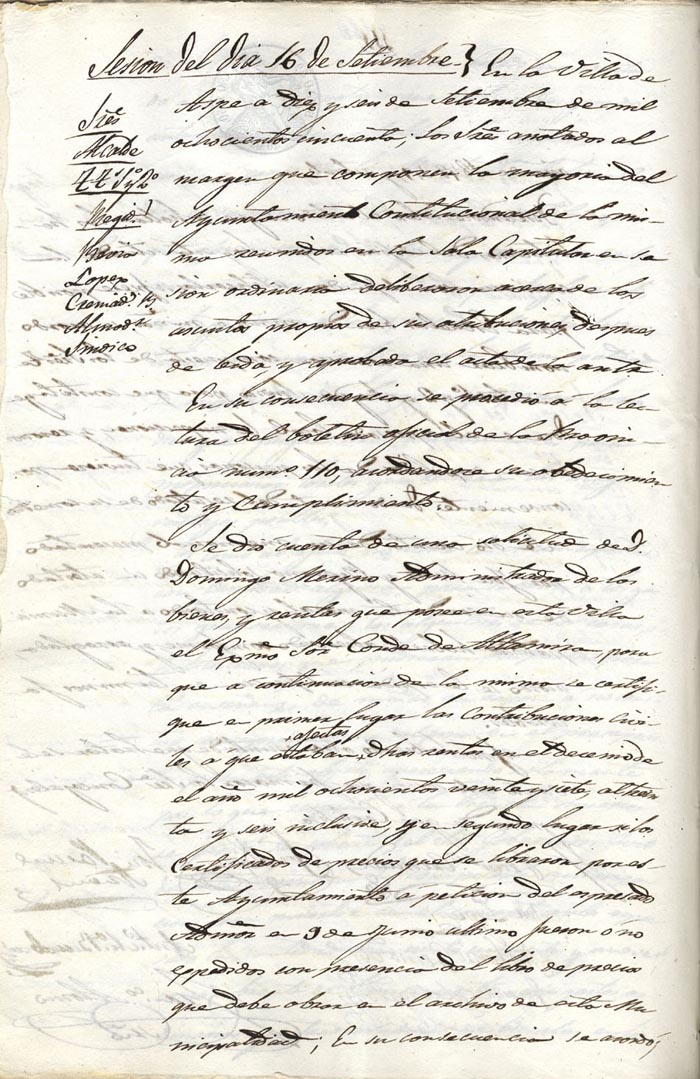 Sesion del dia 16 de Setiembre } En la Villa de
Aspe a diez y seis de Setiembre de mil
ochocientos cincuenta; los Sres anotados al
margen que componen la mayoria del
Ayuntamiento Constitucional de la mis-
ma reunidos en la Sala Capitular en se
sion ordinaria deliberaron acerca de los
asuntos propios de sus atribuciones, despues
de leida y aprobada el acta de la antr.
En su consecuencia se procedió á la lec-
tura del boletin oficial de la Provin-
cia num.o 110, acordandose su obedecimien-
to y cumplimiento.
Se dió cuenta de una solicitud de D.
Domingo Merino Administrador de los
bienes, y rentas que posee en esta Villa
el Exmo Sor Conde de Altamira, para
que a continuacion de la misma se certifi-
que en primer lugar las contribuciones civi-
les a que estaban afectas dhas rentas en el decenio de
el año mil ochocientos veinte y siete, al trein
ta y seis inclusive, y en segundo lugar si los
certificados de precios que se libraron por es-
te Ayuntamiento a peticion del espresado
Admor en 9 de Junio ultimo fueron ó no
expedidos con presencia del libro de precios
que debe obrar en el archivo de esta Mu-
nicipalidad; En su consecuencia se acordó;
Sres
Alcalde
TT 1º y 2º
Regid.s
Lopez
Cremad.s
Almod.r
Sindico